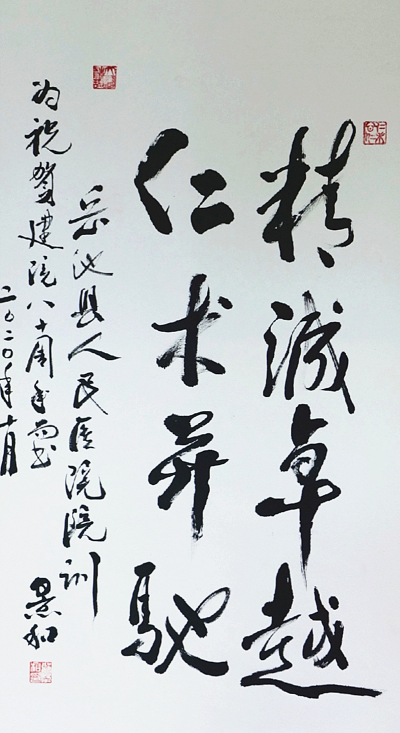 精诚卓越
仁术并驰
岳池县人民医院院训
为祝贺建院八十周年书
二〇二〇年十月
景和